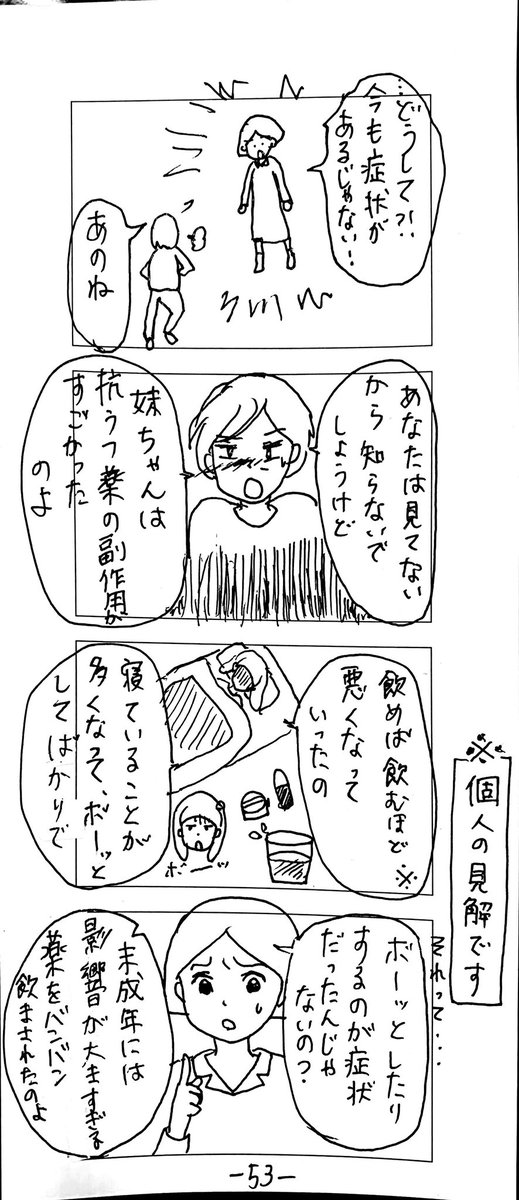 …どうして?!
今も症状が
あるじゃない!
あのね
あなたは見てない
から知らないで
しょうけど
妹ちゃんは
抗うつ薬の副作用が
すごかった
のよ
飲めば飲むほど※
悪くなって
いったの
寝ていることが
多くなって、ボーッと
してばかりで
ボーッ
※個人の見解です
それって・・・
ボーッとしたり
するのが症状
だったんじゃ
ないの?
未成年には
影響が大きすぎる
薬をバンバン
飲まされたのよ
-53-